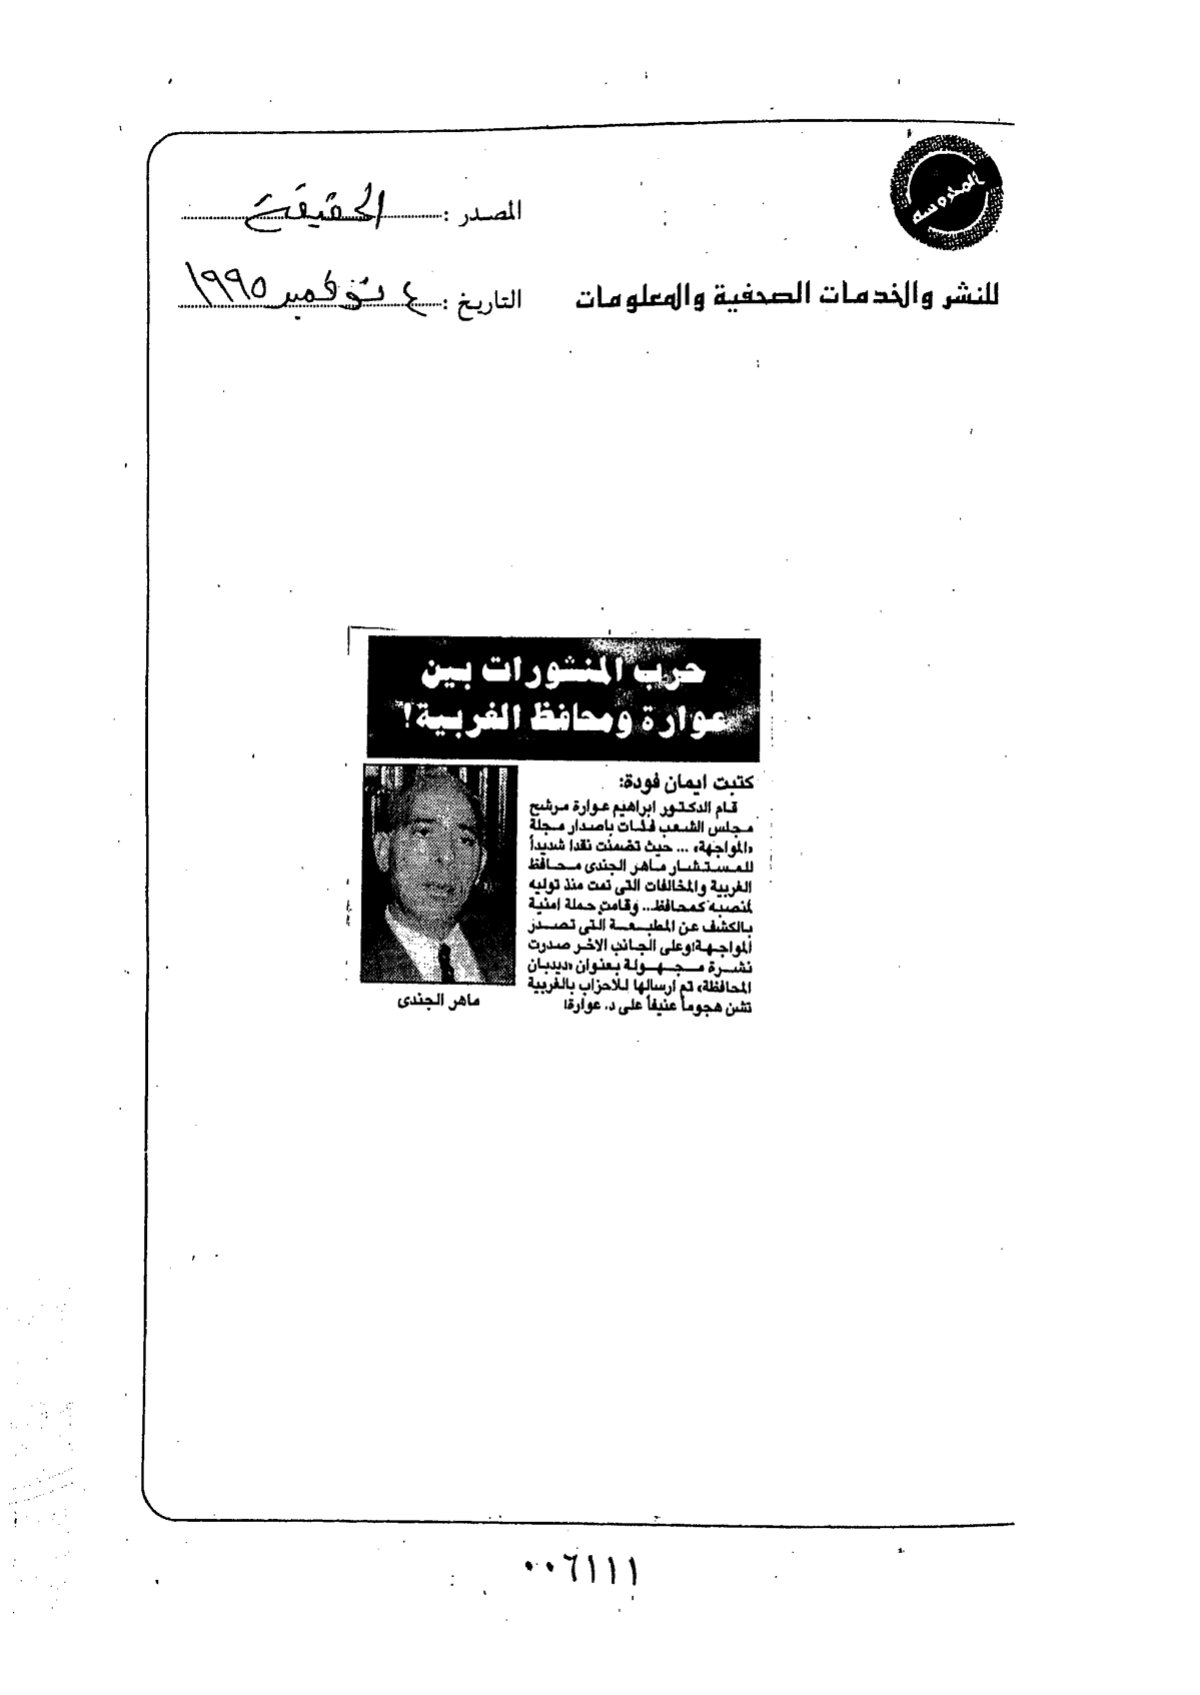 المحروسة
المصدر : الحقيقة
للنشر والخدمات الصحفية والمعلومات
التاريخ : ٤ نوفمبر ١٩٩٥
حرب المنشورات بين
عوارة ومحافظ الغربية!
كتبت ايمان فودة:
قام الدكتور ابراهيم عوارة مرشح
مجلس الشعب فئات باصدار مجلة
«المواجهة» ... حيث تضمنت نقدا شديداً
للمستشار ماهر الجندى محافظ
الغربية والمخالفات التى تمت منذ توليه
لمنصبه كمحافظ.. وقامت حملة امنية
بالكشف عن المطبعة التى تصدر
المواجهة! وعلى الجانب الاخر صدرت
نشرة مجهولة بعنوان «ديدبان
المحافظة» تم ارسالها للاحزاب بالغربية
تشن هجوماً عنيفاً على د. عوارة!
ماهر الجندى
٠٠٦١١١